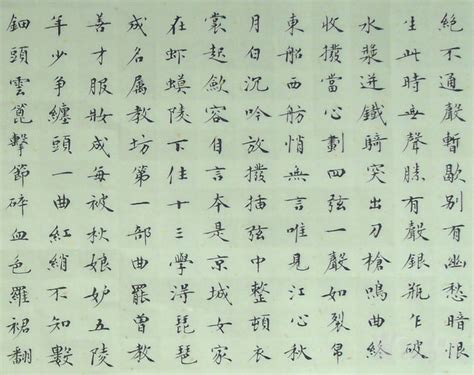 絕不通聲暫歇別有幽愁暗恨
生此時無聲勝有聲銀瓶乍破
水漿迸鐵騎突出刀槍鳴曲終
收撥當心劃四弦一聲如裂帛
東船西舫悄無言唯見江心秋
月白沉吟放撥插弦中整頓衣
裳起斂容自言本是京城女家
在虾蟆陵下住十三學得琵琶
成名屬教坊第一部曲罷曾教
善才服妝成每被秋娘妒五陵
年少爭纏頭一曲紅綃不知數
鈿頭雲篦擊節碎血色羅裙翻